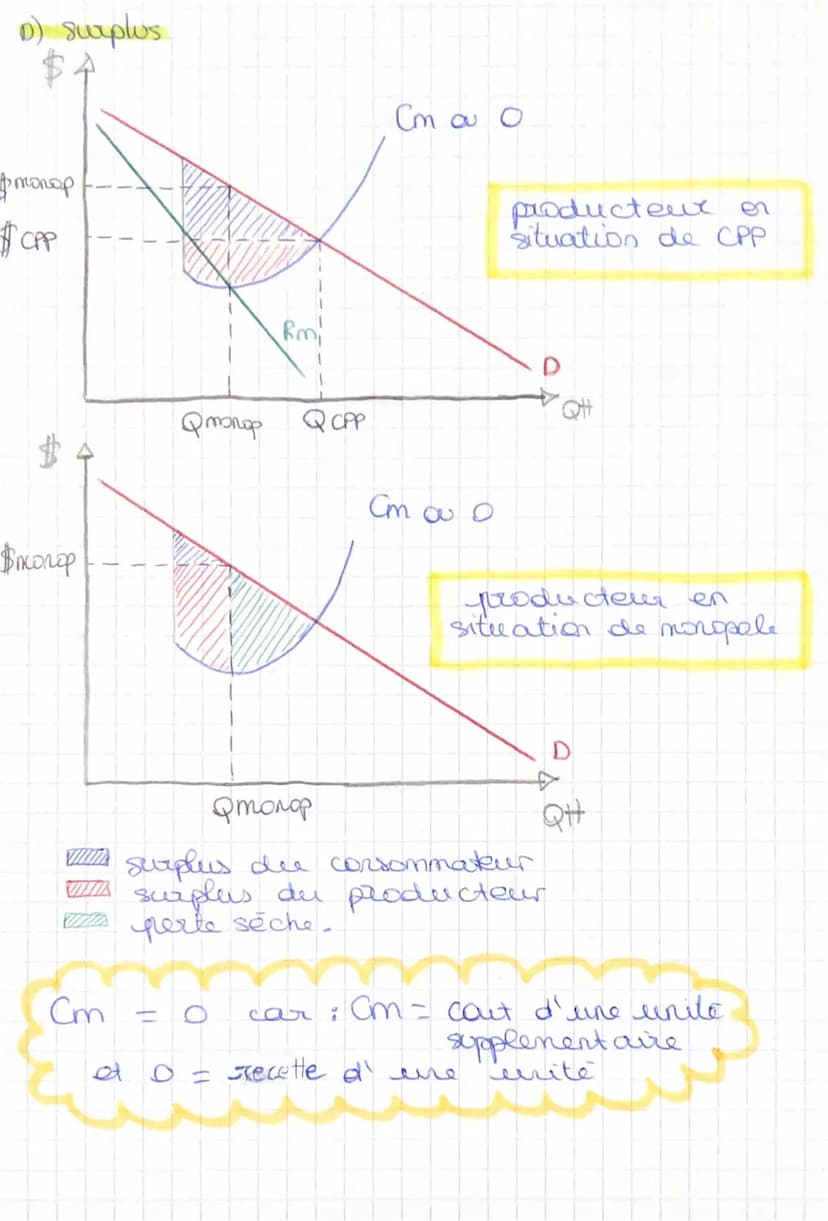 D) surplus
$
Cm ou O
$monop
producteur en
situation de CPP
$CPP
Rm
D
Qtt
Qmonop QCPP
$
Cm ou O
$monop
producteur en
situation de monopole
D
Qmonop
Qtt
surplus du consommateur
surplus du producteur
perte sèche.
Cm = O car : Cm = cout d'une unité
supplementaire
et O = recette d'une unité